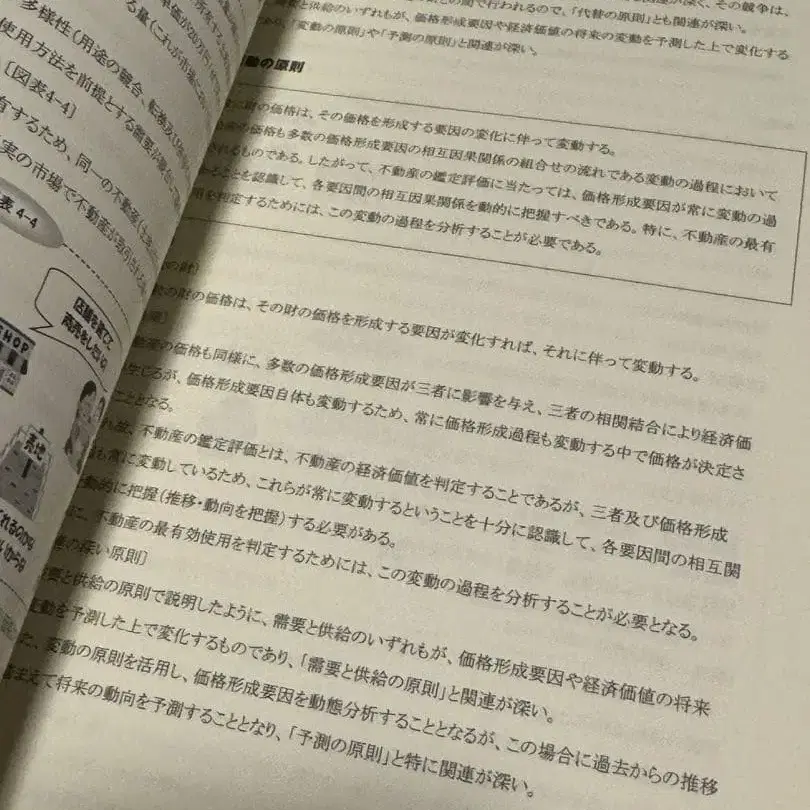 多様性(用途の競合、転換及び
使用方法を前提とする需要が競合
[図表4-4]
有するため、同一の不動産
実の市場で不動産が取引される
表 4-4
店舗を建てて
商売をしたいな
SHOP
売地
需要と供給のいずれもが、価格形成要因や経済価値の将来の変動を予測した上で変化する
「変動の原則」や「予測の原則」と関連が深い。
動の原則
に財の価格は、その価格を形成する要因の変化に伴って変動する。
産の価格も多数の価格形成要因の相互因果関係の組合せの流れである変動の過程において
されるものである。したがって、不動産の鑑定評価に当たっては、価格形成要因が常に変動の過
ることを認識して、各要因間の相互因果関係を動的に把握すべきである。特に、不動産の最有
用を判定するためには、この変動の過程を分析することが必要である。
の財)
の財の価格は、その財の価格を形成する要因が変化すれば、それに伴って変動する。
産の価格も同様に、多数の価格形成要因が三者に影響を与え、三者の相関結合により経済価
生じるが、価格形成要因自体も変動するため、常に価格形成過程も変動する中で価格が決定さ
こととなる。
れ故、不動産の鑑定評価とは、不動産の経済価値を判定することであるが、三者及び価格形成
も常に変動しているため、これらが常に変動するということを十分に認識して、各要因間の相互関
動的に把握(推移・動向を把握)する必要がある。
に、不動産の最有効使用を判定するためには、この変動の過程を分析することが必要となる。
の深い原則〕
要と供給の原則で説明したように、需要と供給のいずれもが、価格形成要因や経済価値の将来
変動を予測した上で変化するものであり、「需要と供給の原則」と関連が深い。
た、変動の原則を活用し、価格形成要因を動態分析することとなるが、この場合に過去からの推移
踏まえて将来の動向を予測することとなり、「予測の原則」と特に関連が深い。